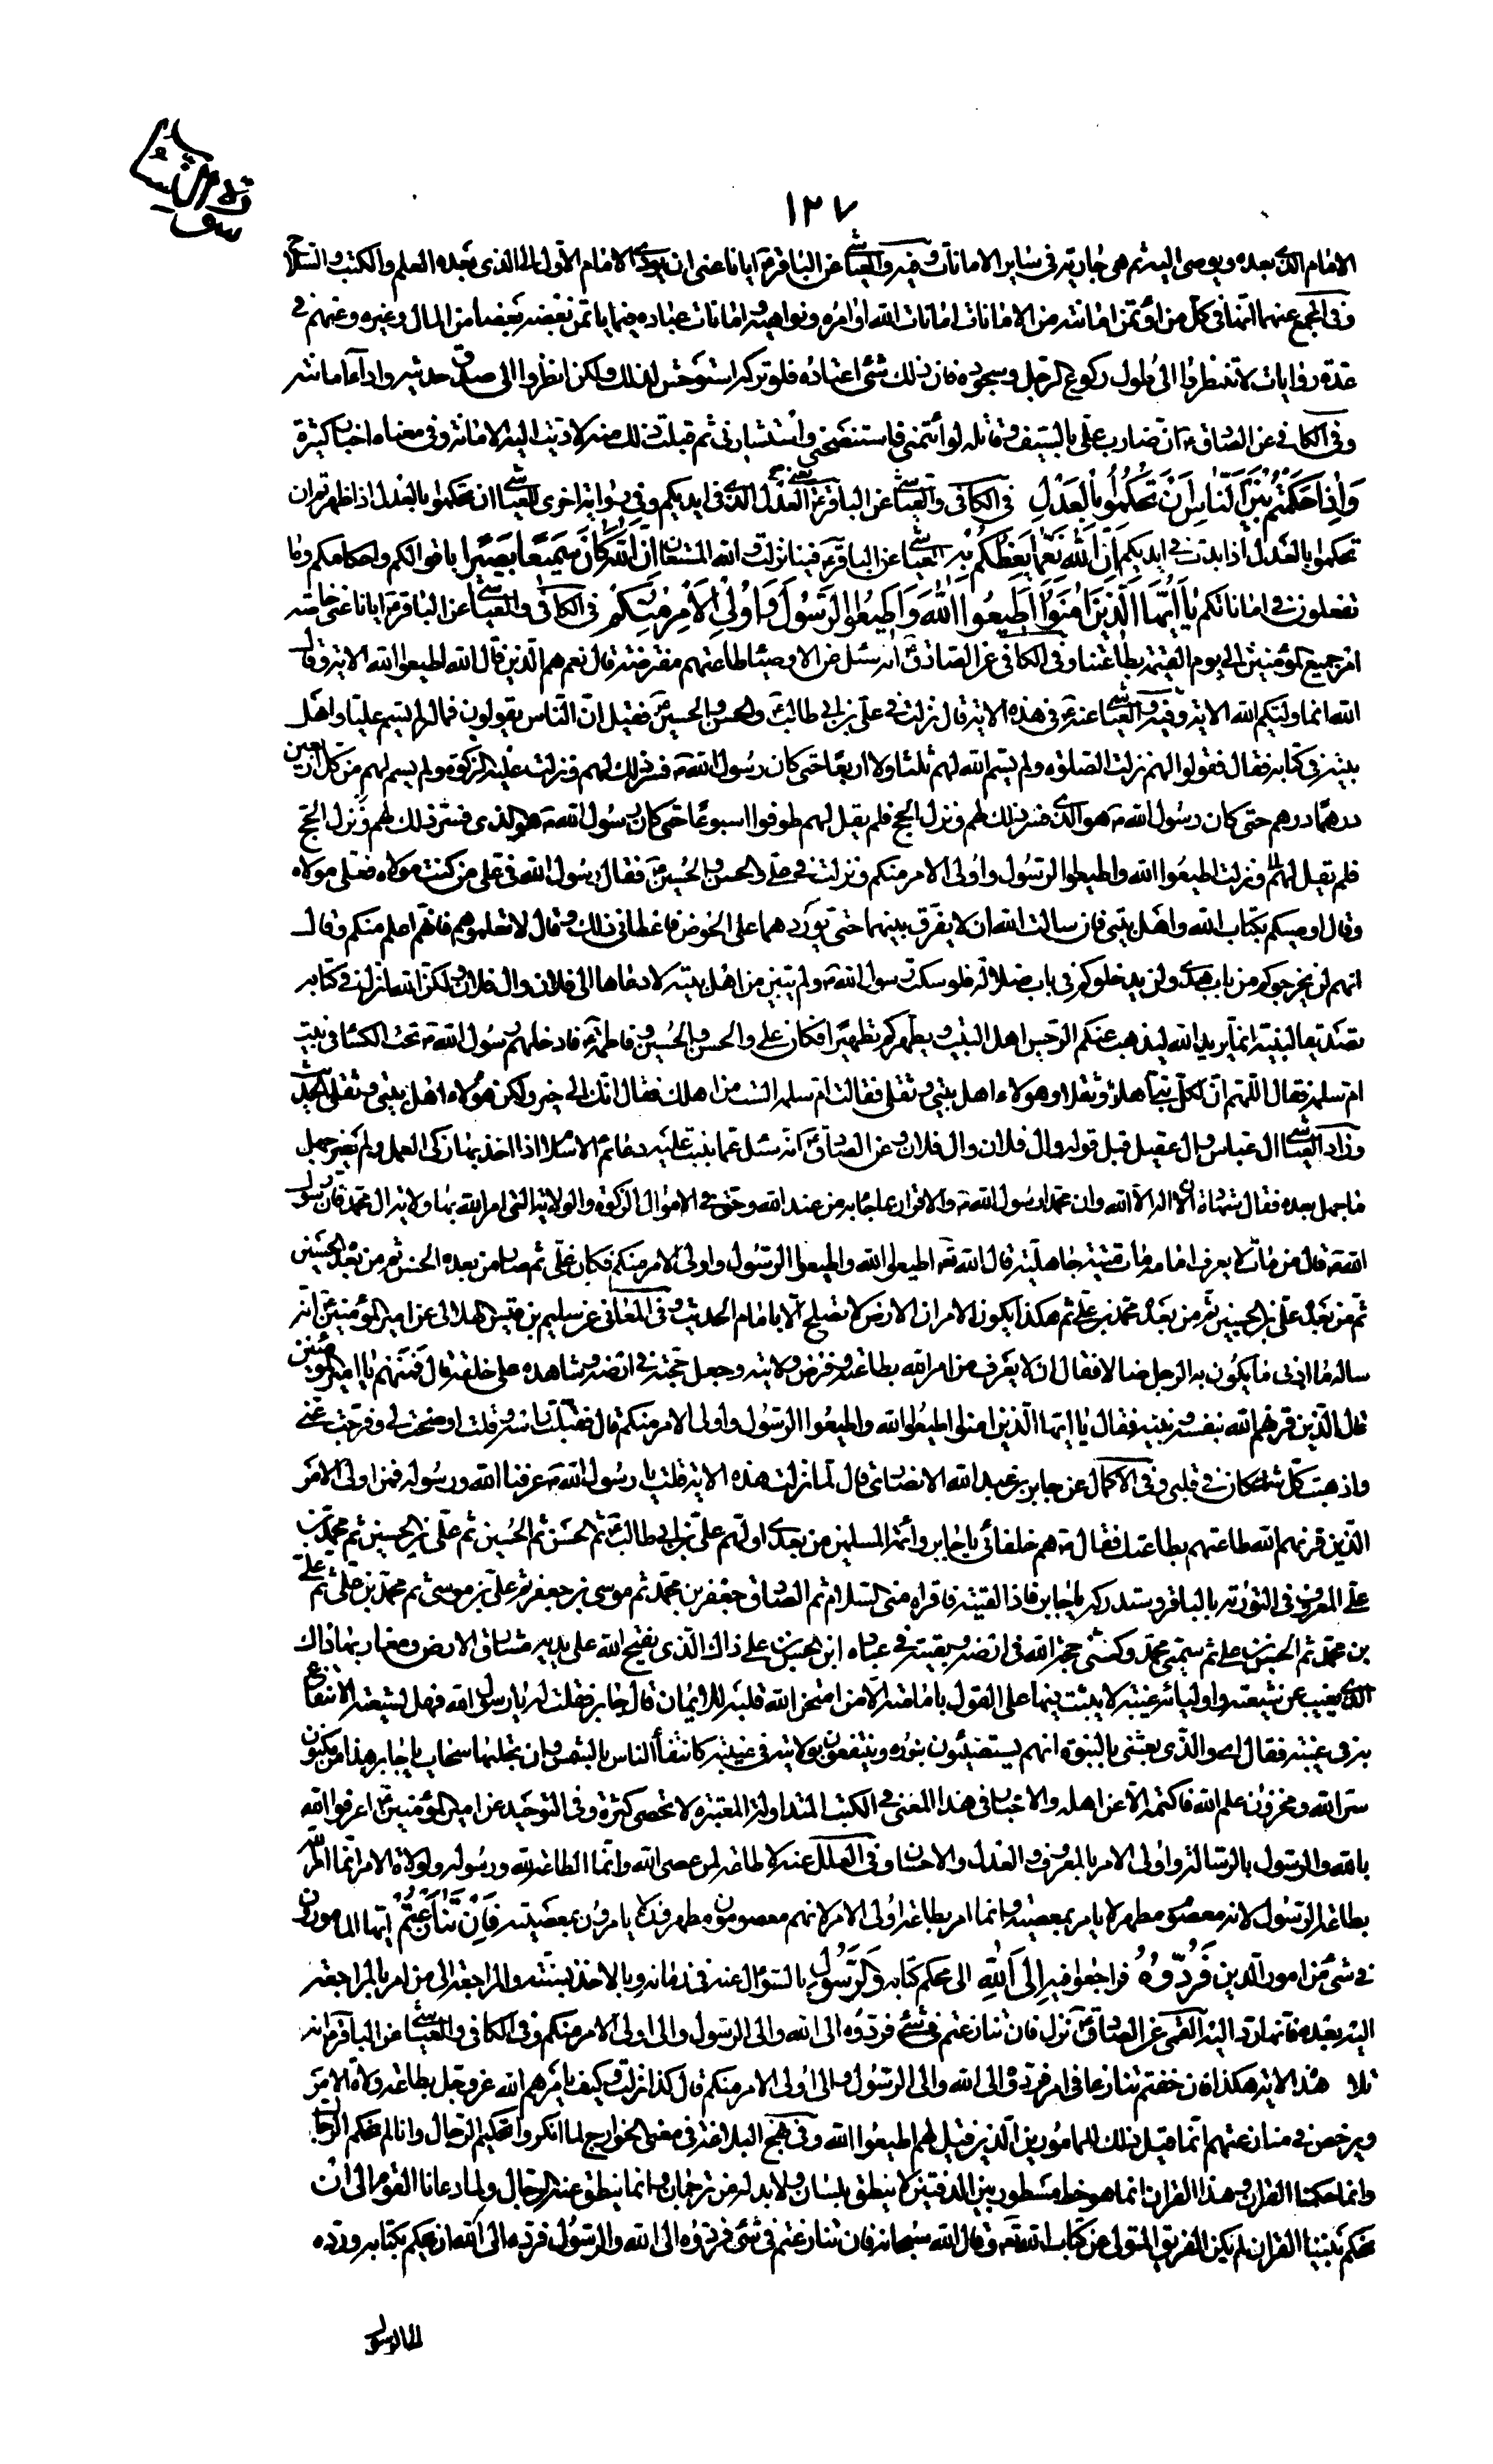 سورة النساء
١٢٧
الامام الذى بعده ويوصى اليه ثم هى جارية فى ساير الامانات وفيه والعياشى عن الباقر ع ايانا عنى ان يؤدى الامام الاول الى الذى بعده العلم والكتب والسلاح
وفى المجمع عنهما انها فى كل من اؤتمن امانة من الامانات امانات الله اوامره ونواهيه وامانات عباده فيما ياتمن بعضهم بعضا من المال وغيره وعنهم فى
عدة روايات لا تنظروا الى طول ركوع الرجل وسجوده فان ذلك شئ اعتاده فلو تركه استوحش لذلك ولكن انظروا الى صدق حديثه واداء امانته
وفى الكافى عن الصادق ع ان ضارب على بالسيف وقاتله لو ائتمننى واستنصحنى واستشارنى ثم قبلت ذلك منه لاديت اليه الامانة وفى معناه اخبار كثيرة
وَاِذا حَكَمْتُمْ بَيْنَ النّاسِ اَنْ تَحْكُمُوا بِالْعَدْلِ فى الكافى والعياشى عن الباقر ع يعنى العدل الذى فى ايديكم وفى رواية اخرى للعياشى ان تحكموا بالعدل اذا ظهرتم ان
تحكموا بالعدل اذا بدت فى ايديكم اِنَّ اللهَ نِعِمّا يَعِظُكُمْ بِهِ العياشى عن الباقر ع فينا نزلت والله المستعان اِنَّ اللهَ كانَ سَميعًا بَصيرًا باقوالكم واحكامكم وما
تفعلون فى اماناتكم يا اَيُّهَا الَّذينَ امَنُوا اَطيعُوا اللهَ وَاَطيعُوا الرَّسُولَ وَاُولِى الْاَمْرِ مِنْكُمْ فى الكافى والعياشى عن الباقر ع ايانا عنى خاصة
امر جميع المؤمنين الى يوم القيمة بطاعتنا وفى الكافى عن الصادق ع انه سئل عن الاوصياء طاعتهم مفترضة قال نعم هم الذين قال الله اطيعوا الله الاية وقال
الله انما وليكم الله الاية وفيه والعياشى عنه ع فى هذه الاية قال نزلت فى على بن ابى طالب ع والحسن والحسين ع فقيل ان الناس يقولون فما له لم يسم عليا واهل
بيته فى كتابه فقال فقولوا لهم نزلت الصلوة ولم يسم الله لهم ثلثا ولا اربعا حتى كان رسول الله ص فسر ذلك لهم ونزلت عليه الزكوة ولم يسم لهم من كل اربعين
درهما درهم حتى كان رسول الله ص هو الذى فسر ذلك لهم ونزل الحج فلم يقل لهم طوفوا اسبوعا حتى كان رسول الله ص هو الذى فسر ذلك لهم ونزل الحج
فلم يقل لهم ونزلت اطيعوا الله واطيعوا الرسول واولى الامر منكم ونزلت فى على والحسن والحسين ع فقال رسول الله فى على من كنت مولاه فعلى مولاه
وقال اوصيكم بكتاب الله واهل بيتى فانى سالت الله ان لا يفرق بينهما حتى يوردهما على الحوض فاعطانى ذلك وقال لا تعلموهم فانهم اعلم منكم وقال
انهم لن يخرجوكم من باب هدى ولن يدخلوكم فى باب ضلالة فلو سكت رسول الله ص ولم يبين من اهل بيته لادعاها ال فلان وال فلان ولكن الله انزل فى كتابه
تصديقا لنبيه انما يريد الله ليذهب عنكم الرجس اهل البيت ويطهركم تطهيرا فكان على والحسن والحسين وفاطمة ع فادخلهم رسول الله ص تحت الكساء فى بيت
ام سلمة فقال اللهم ان لكل نبى اهلا وثقلا وهولاء اهل بيتى وثقلى فقالت ام سلمة الست من اهلك فقال انك الى خير ولكن هؤلاء اهل بيتى وثقلى الحديث
وزاد العياشى ال عباس وال عقيل قبل قوله وال فلان وال فلان وعن الصادق ع انه سئل عما بنيت عليه دعائم الاسلام اذا اخذ بها زكى العمل ولم يضر جهل
ما جهل بعده فقال شهادة ان لا اله الا الله وان محمدا رسول الله ص والاقرار بما جاء به من عند الله وحق فى الاموال الزكوة والولاية التى امر الله بها ولاية ال محمد فان رسول
الله ص قال من مات لا يعرف امامه مات ميتة جاهلية قال الله تعالى اطيعوا الله واطيعوا الرسول واولى الامر منكم فكان على ثم صار من بعده الحسن ثم من بعده الحسين
ثم من بعده على بن الحسين ثم من بعده محمد بن على ثم هكذا يكون الامر ان الارض لا تصلح الا بامام الحديث وفى المعانى عن سليم بن قيس الهلالى عن امير المؤمنين ع انه
ساله ما ادنى ما يكون به الرجل ضالا فقال ان لا يعرف من امر الله بطاعته وفرض ولايته وجعل حجته فى ارضه وشاهده على خلقه قال فمنهم يا امير المؤمنين
قال الذين قرنهم الله بنفسه ونبيه فقال يا ايها الذين امنوا اطيعوا الله واطيعوا الرسول واولى الامر منكم قال فقبلت راسه وقلت اوضحت لى وفرجت عنى
واذهبت كل شك كان فى قلبى وفى الاكمال عن جابر بن عبد الله الانصارى قال لما نزلت هذه الاية قلت يا رسول الله ص عرفنا الله ورسوله فمن اولى الامر
الذين قرنهم الله طاعتهم بطاعتك فقال ص هم خلفائى يا جابر وائمة المسلمين من بعدى اولهم على بن ابى طالب ع ثم الحسن ثم الحسين ثم على بن الحسين ثم محمد بن
على المعروف فى التورية بالباقر وستدركه يا جابر فاذا لقيته فاقراه منى السلام ثم الصادق جعفر بن محمد ثم موسى بن جعفر ثم على بن موسى ثم محمد بن على ثم على
بن محمد ثم الحسن بن على ثم سميى محمد وكنيى حجة الله فى ارضه وبقيته فى عباده ابن الحسن بن على ذاك الذى يفتح الله على يديه مشارق الارض ومغاربها ذاك
الذى يغيب عن شيعته واوليائه غيبة لا يثبت فيها على القول بامامته الا من امتحن الله قلبه للايمان قال جابر فقلت له يا رسول الله فهل لشيعته الانتفاع
به فى غيبته فقال اى والذى بعثنى بالنبوة انهم يستضيئون بنوره وينتفعون بولايته فى غيبته كانتفاع الناس بالشمس وان تجللها سحاب يا جابر هذا من مكنون
سر الله ومخزون علم الله فاكتمه الا عن اهله والاخبار فى هذا المعنى فى الكتب المتداولة المعتبرة لا تحصى كثرة وفى التوحيد عن امير المؤمنين ع اعرفوا الله
بالله والرسول بالرسالة واولى الامر بالمعروف والعدل والاحسان وفى العلل عنه لا طاعة لمن عصى الله وانما الطاعة لله ورسوله ولولاة الامر انما امر الله
بطاعة الرسول لانه معصوم مطهر لا يامر بمعصيته وانما امر بطاعة اولى الامر لانهم معصومون مطهرون لا يامرون بمعصيته فَاِنْ تَنازَعْتُمْ ايها المامورون
فى شئ من امور الدين فَرُدُّوهُ فراجعوا فيه اِلَى اللهِ الى محكم كتابه وَالرَّسُولِ بالسؤال عنه فى زمانه وبالاخذ بسنته والمراجعة الى من امر بالمراجعة
اليه بعده فانها رد اليه القمى عن الصادق ع نزل فان تنازعتم فى شئ فردوه الى الله والى الرسول والى اولى الامر منكم وفى الكافى والعياشى عن الباقر ع انه
تلا هذه الاية هكذا فان خفتم تنازعا فى امر فردوه الى الله والى الرسول والى اولى الامر منكم قال كذا نزلت وكيف يامرهم الله عز وجل بطاعة ولاة الامر
ويرخص فى منازعتهم انما قيل ذلك للمامورين الذين قيل لهم اطيعوا الله وفى نهج البلاغة فى معنى الخوارج لما انكروا تحكيم الرجال وانا لم نحكم الرجال
وانما حكمنا القران وهذا القران انما هو خط مسطور بين الدفتين لا ينطق بلسان ولا بد له من ترجمان وانما ينطق عنه الرجال ولما دعانا القوم الى ان
نحكم بيننا القران لم نكن الفريق المتولى عن كتاب الله تعالى وقال الله سبحانه فان تنازعتم فى شئ فردوه الى الله والرسول فرده الى الله ان نحكم بكتابه ورده
الى الرسول